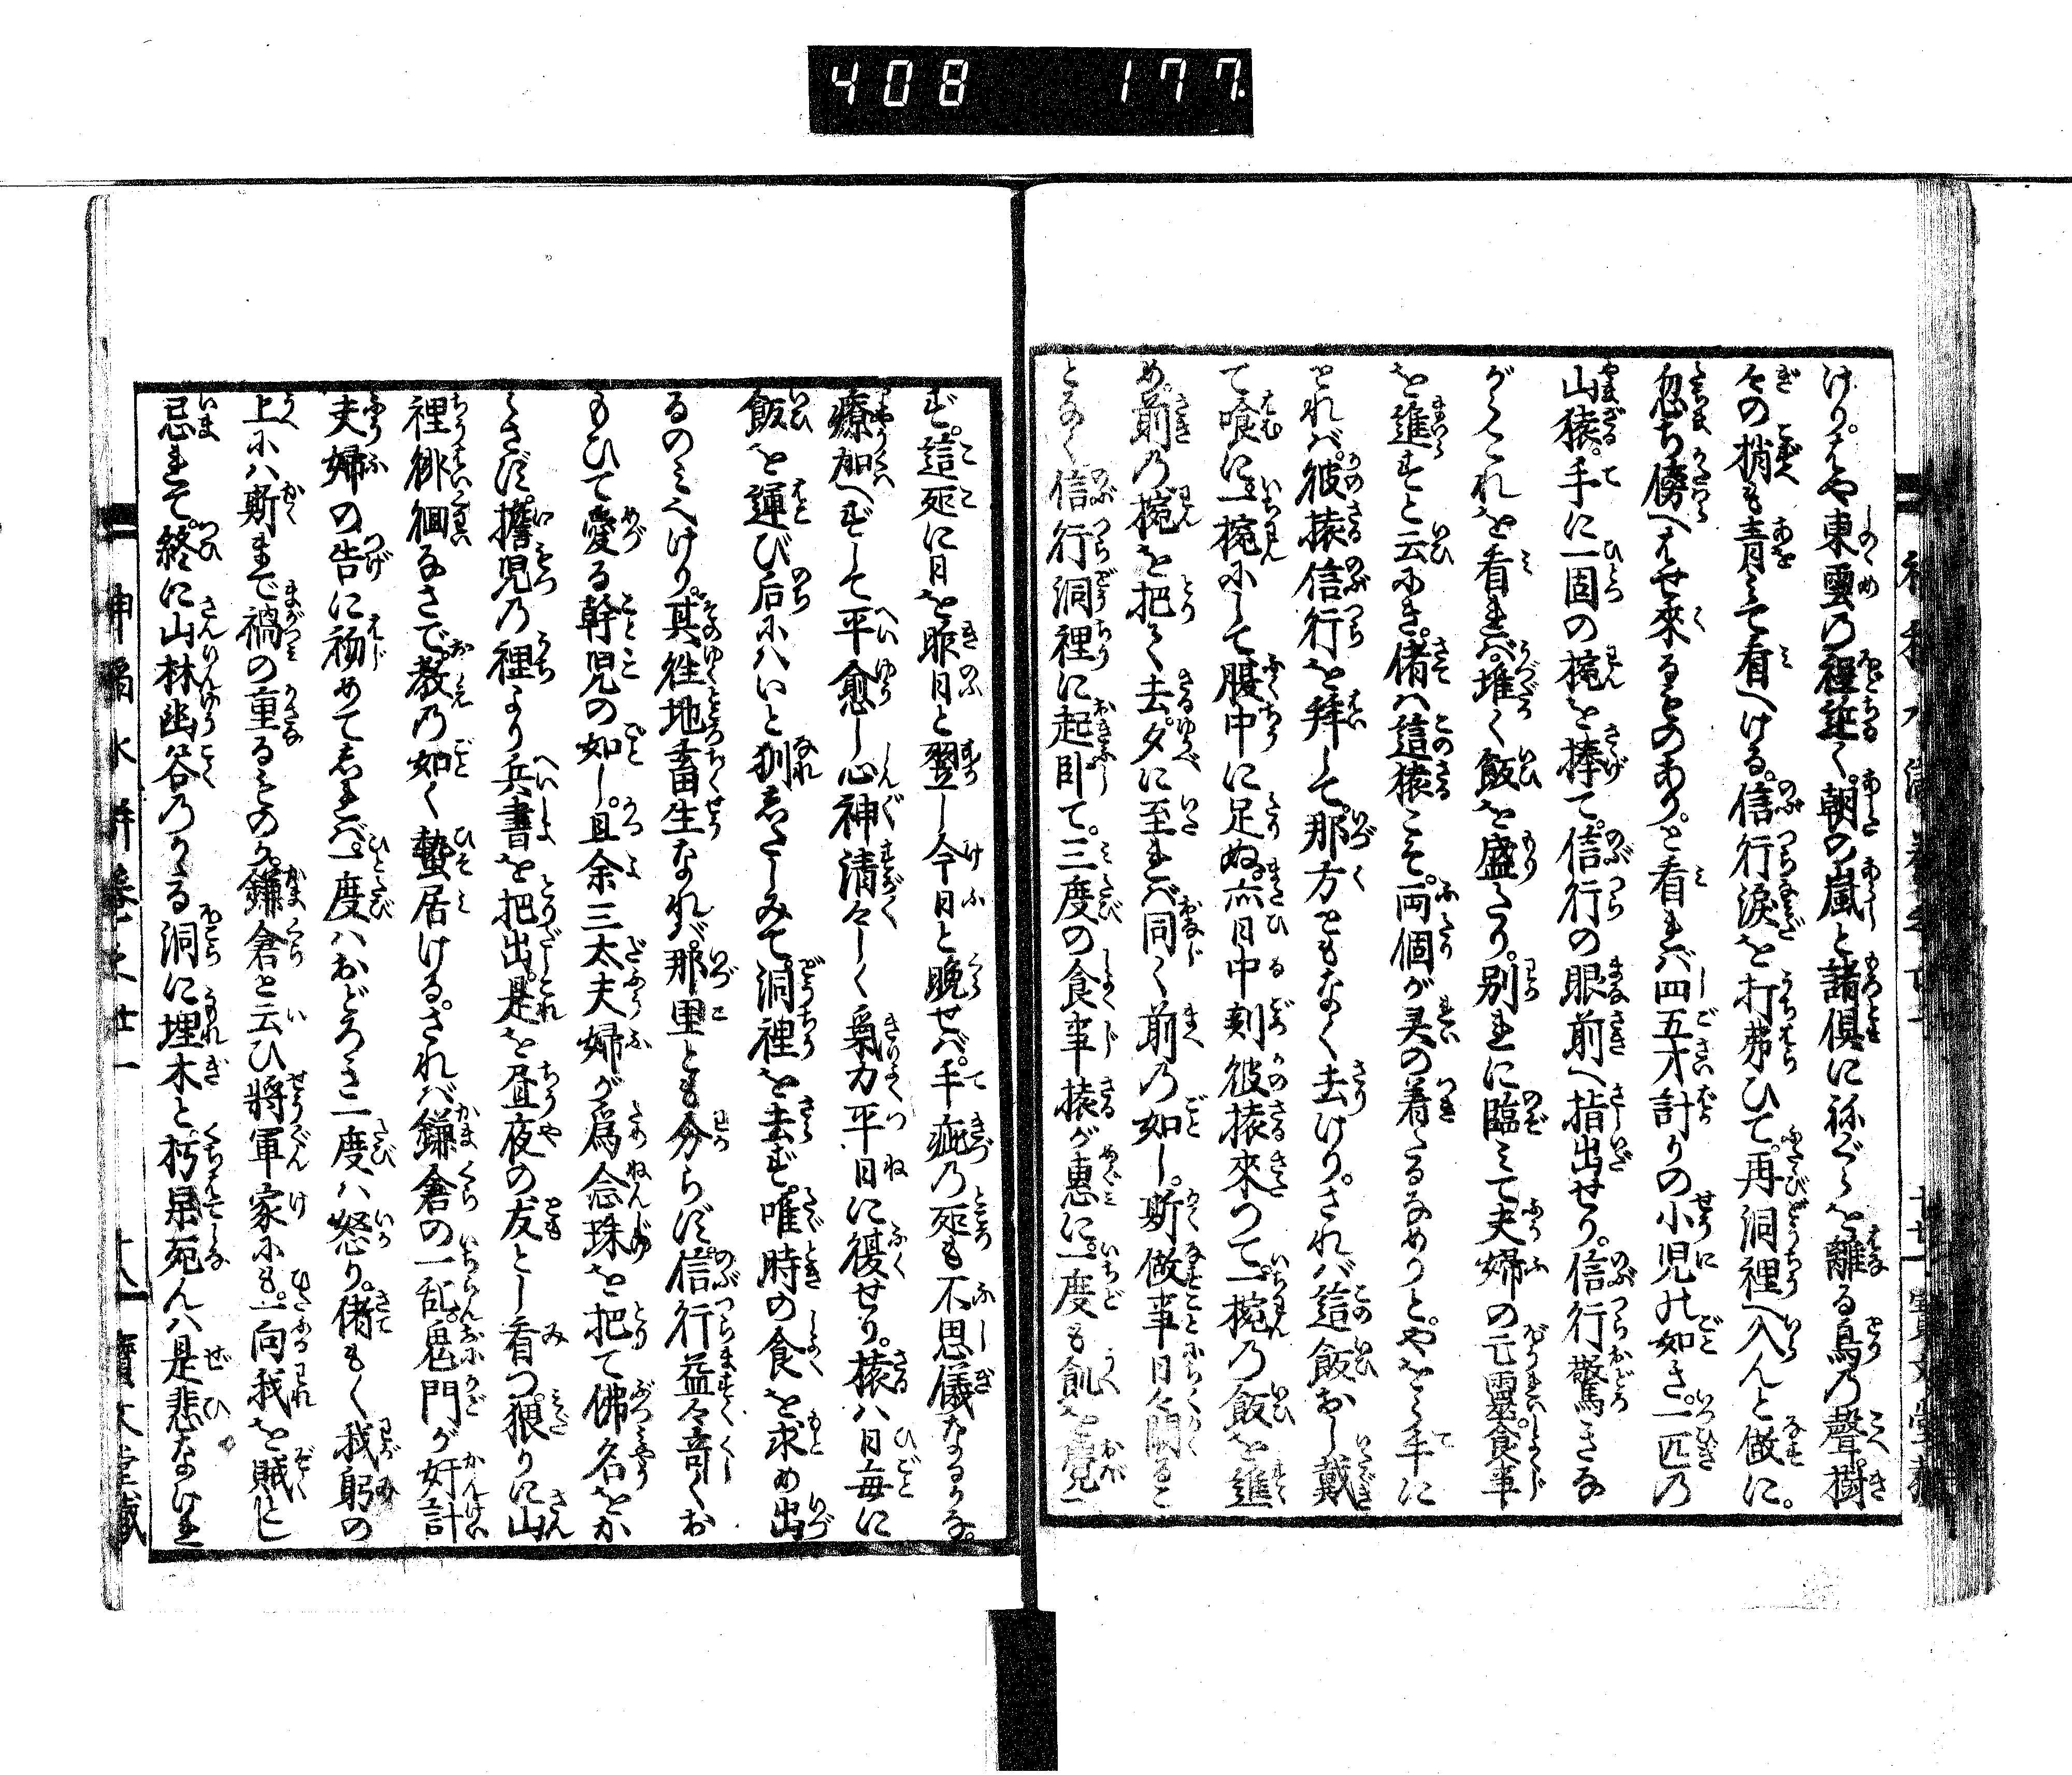 408 177.
けり。はや東雲乃程近く。朝の嵐と諸倶に祢ぐらを離る鳥乃聲。樹
々の梢も青みて看へける。信行涙を打拂ひて。再洞裡へ入んと做に。
忽ち傍へはせ來るものあり。と看れバ四五才計りの小児の如き。一匹乃
山猿。手に一固の椀を捧て。信行の眼前へ指出せり。信行驚きな
がらこれを看れバ堆く飯を盛たり。別れに臨みて夫婦の亡霊。食事
を進すと云ふき。偖ハ這猿こそ。両個が灵の着たるなめりと。やをら手に
とれバ。彼猿信行を拜して。那方ともなく去けり。されバ這飯おし戴
て喰に一椀ふして腹中に足ぬ。亦日中刻彼猿來つて。一椀乃飯を進
め。前乃椀を把て去。夕に至れバ同く前乃如し。斯做事日々闕るこ
となく信行洞裡に起臥て。三度の食事猿が惠に。一度も飢を覺へ
ず。這死に日を昨日と翌し今日と晩せバ。手疵乃死も不思儀なるかな。
療加へずして平愈し心神清々しく氣力平日に復せり。猿ハ日毎に
飯を運び后にハいと馴したしみて。洞裡を去ず。唯時の食を求め出
るのミへけり。其徃地畜生なれバ。那里とも分らず。信行益々奇くお
もひて愛る幹児の如し。且余三太夫婦が爲念珠を把て佛名をか
くさず。擔児乃裡より兵書を把出。是を昼夜の友とし看つ。猥りに山
裡徘徊なさで。教乃如く蟄居ける。されバ鎌倉の一乱。鬼門が奸計
夫婦の告に初めてしれバ。一度ハおどろき二度ハ怒り。偖もく我躬の
上にハ斯まで禍の重るものか。鎌倉と云ひ將軍家にも。一向我を賊とし
忌れて。終に山林幽谷乃かゝる洞に埋木と朽果死んハ是悲なけれ
神稲水滸巻之廿一 十八 寶文堂蔵